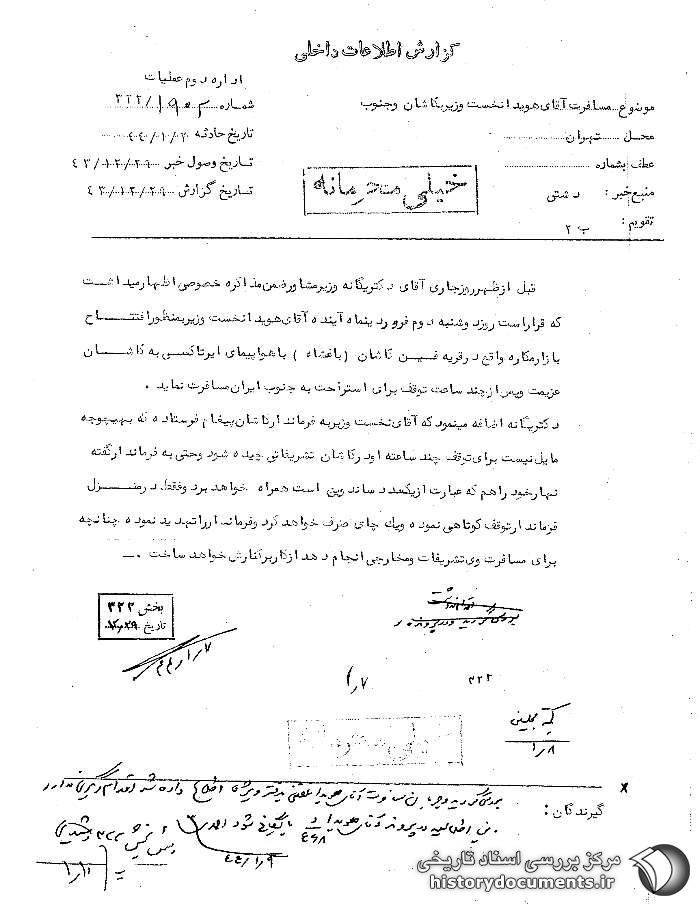 گزارش اطلاعات داخلی
اداره دوم عملیات
شماره ۳۲۲/۱۹۰۲
تاریخ حادثه ۴۴/۰۱/۰۲
تاریخ وصول خبر ۴۳/۱۲/۲۹
تاریخ گزارش ۴۳/۱۲/۲۹
موضوع مسافرت آقای هویدا نخست وزیر بکاشان وجنوب
محل تهران
عطف بشماره
منبع خبر : دشتی
تقویم : ب ۲
خیلی محرمانه
قبل ازظهر روزجاری آقای دکتریگانه وزیرمشاورضمن مذاکره خصوصی اظهارمیداشت
که قراراست روزدوشنبه دوم فروردینماه آینده آقای هویدا نخست وزیربمنظورافتتاح
بازارمکاره واقع درقریه فین کاشان (باغشاه) باهواپیمای ایرتاکسی به کاشان
عزیمت وپس ازچند ساعت توقف برای استراحت به جنوب ایران مسافرت نماید .
دکتریگانه اضافه مینمود که آقای نخست وزیربه فرماندارکاشان پیغام فرستاده که بهیچوجه
مایل نیست برای توقف چند ساعته اودرکاشان تشریفاتی چیده شود وحتی به فرماندارگفته
نهارخود راهم که عبارت ازیکعدد ساندویچ است همراه خواهد برد وفقط درمنزل
فرماندارتوقف کوتاهی نموده ویک چای صرف خواهد کرد وفرمانداررا تهدید نموده چنانچه
برای مسافرت وی تشریفات ومخارجی انجام دهد ازکاربرکنارش خواهد ساخت .
بخش ۳۲۲
تاریخ ۱۲/۲۹
۱/۷
۳۲۲
۱/۸
گیرندگان :
۴۴/۱/۹
مرکز بررسی اسناد تاریخی
historydocuments.ir